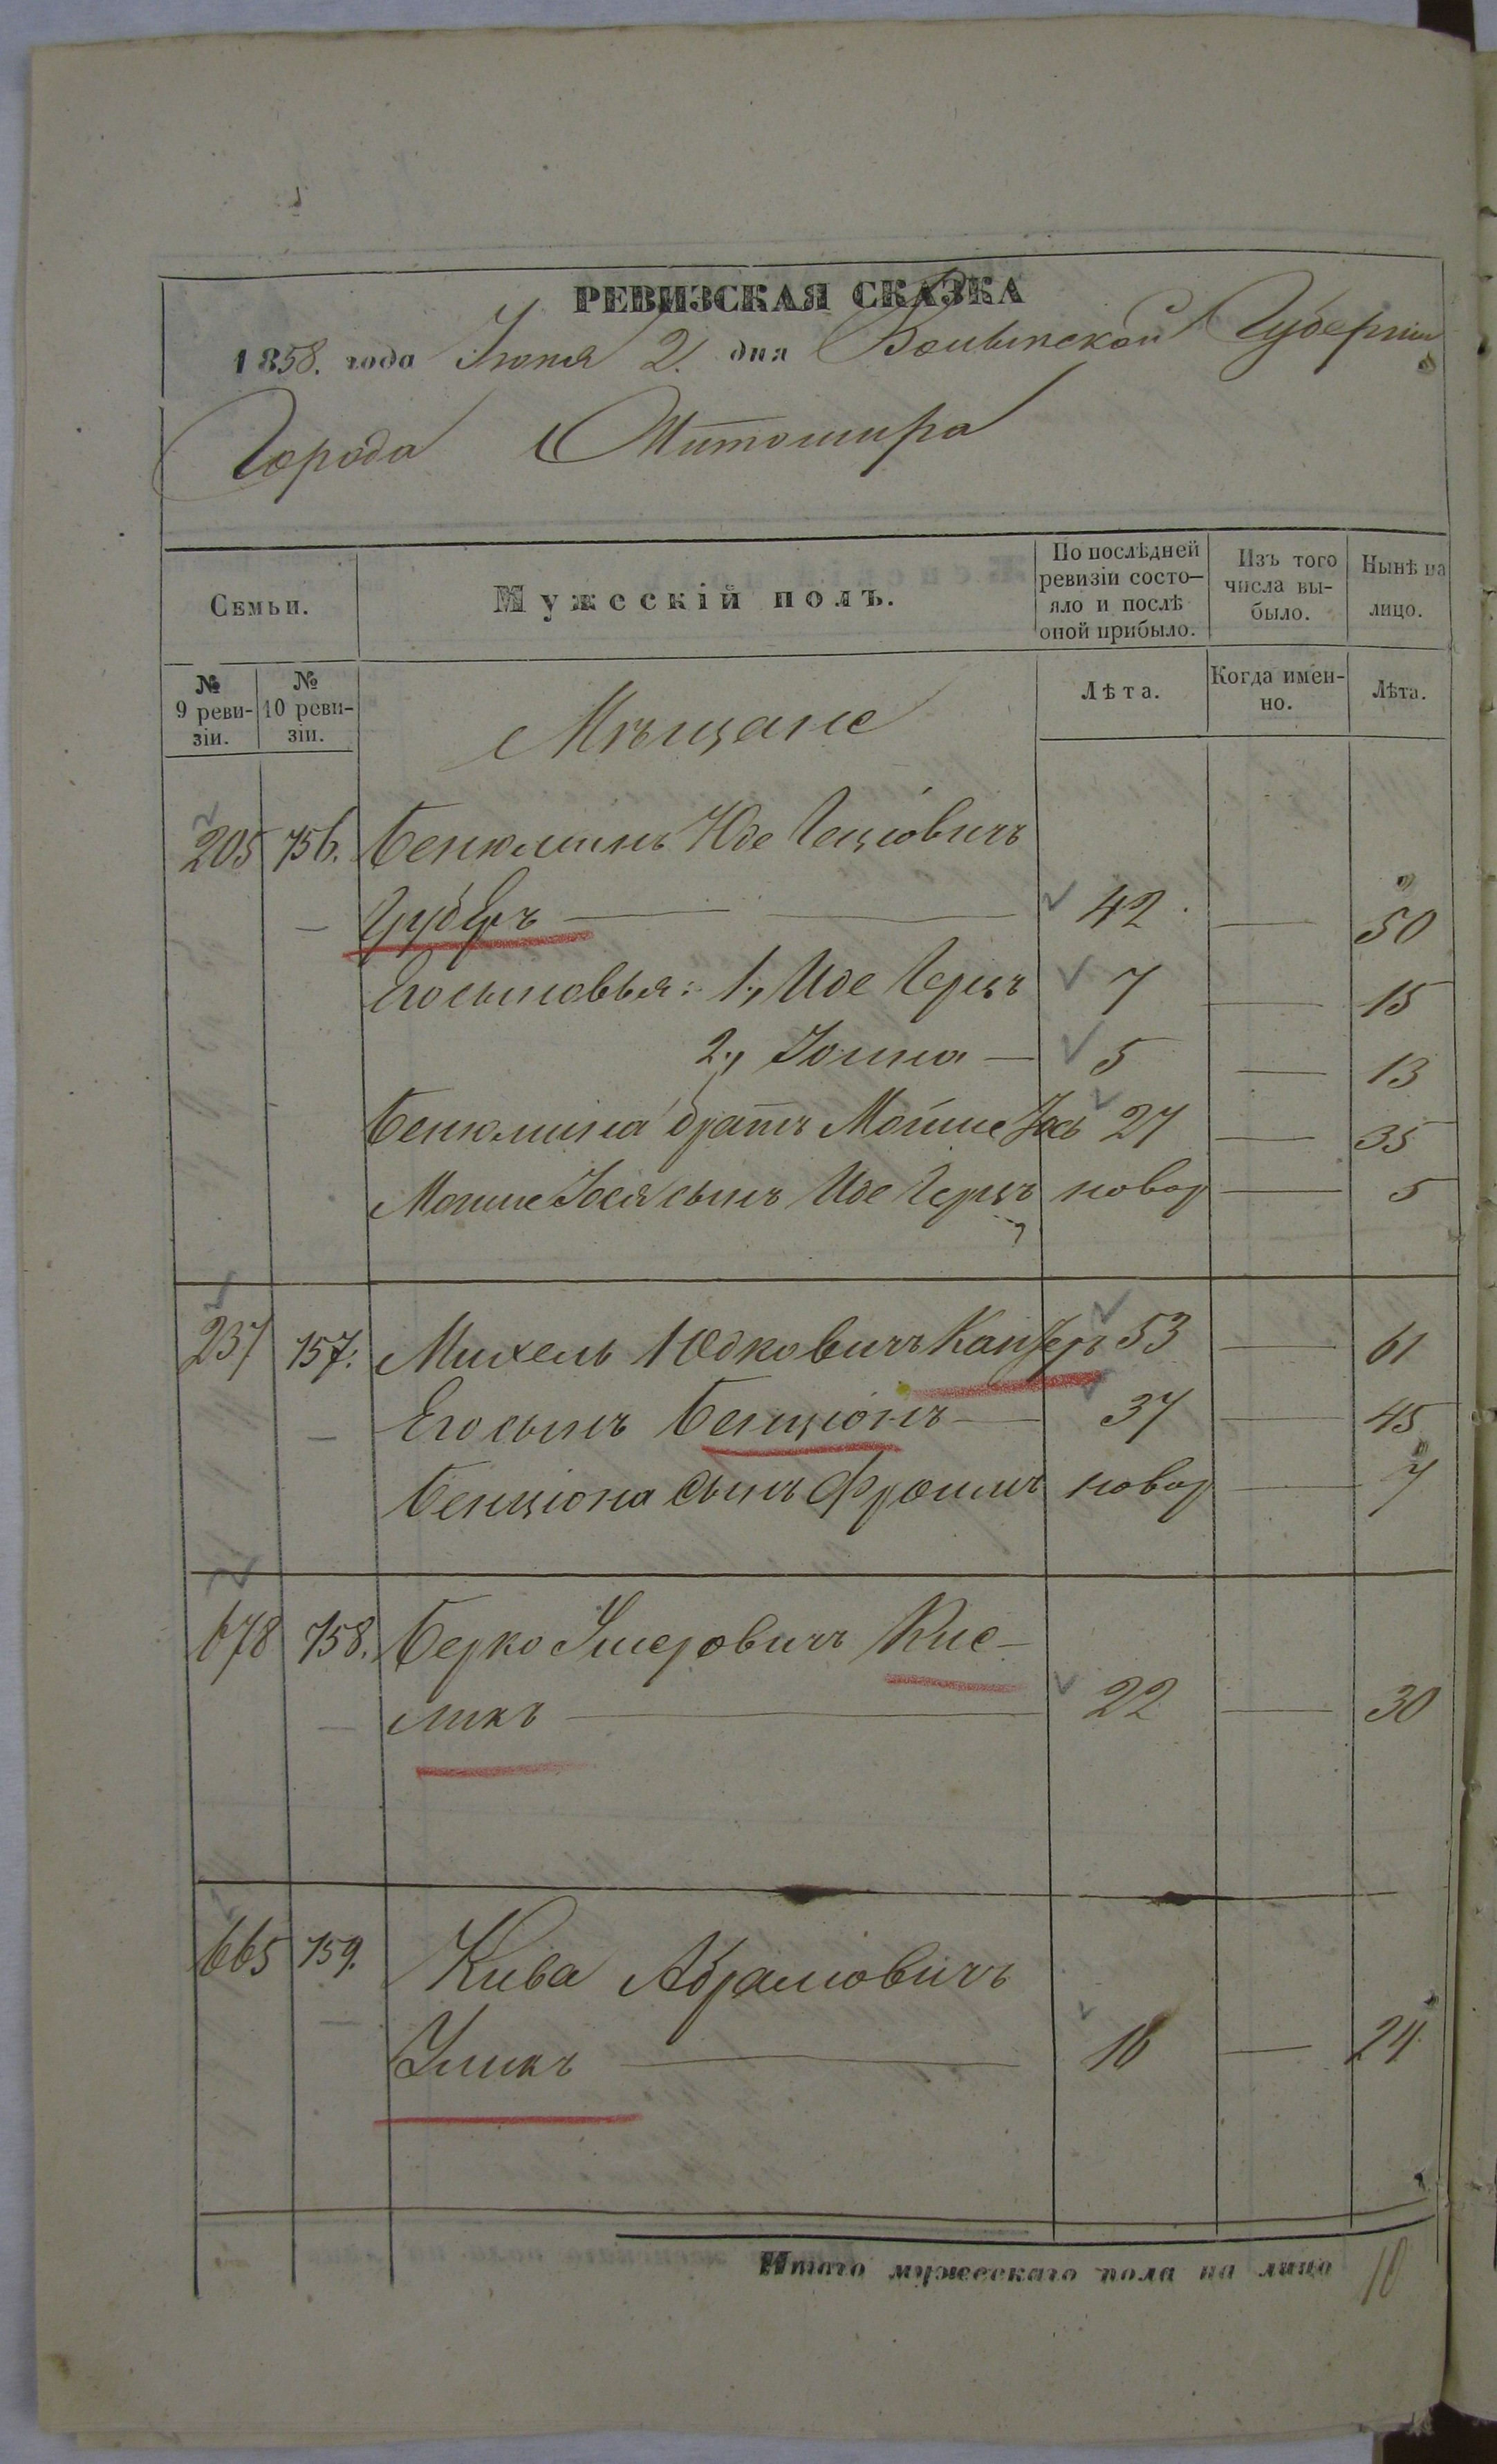 РЕВИЗСКАЯ СКАЗКА
1858. года Июня 2. дня Волынской Губернии
Города Житомира
Семьи. Мужескій полъ. По послѣдней ревизіи состо- яло и послѣ оной прибыло. Изъ того числа вы- было. Нынѣ на лицо.
№ 9 реви- зіи. № 10 реви- зіи. Лѣта. Когда имен- но. Лѣта.
Мѣщане
205 156. Бенюминъ Юде
Груберъ — 42 — 50
Его сыновья: 1., Иде Герцъ 7 — 15
2., Иойна — 5 — 13
Бенюмина братъ Мойше Іось 27 — 35
Мойше Іося сынъ Иде Герцъ новор — 5
237 157. Михель Юдковичъ Канферъ 53 — 61
Его сынъ Бенціонъ — 37 — 45
Бенціона сынъ Фроимъ новор — 7
678 158. Берко Умеровичъ Кис-
ликъ — 22 — 30
665 159. Кива Абрамовичъ
— 16 — 24
Итого мужескаго пола на лицо 10